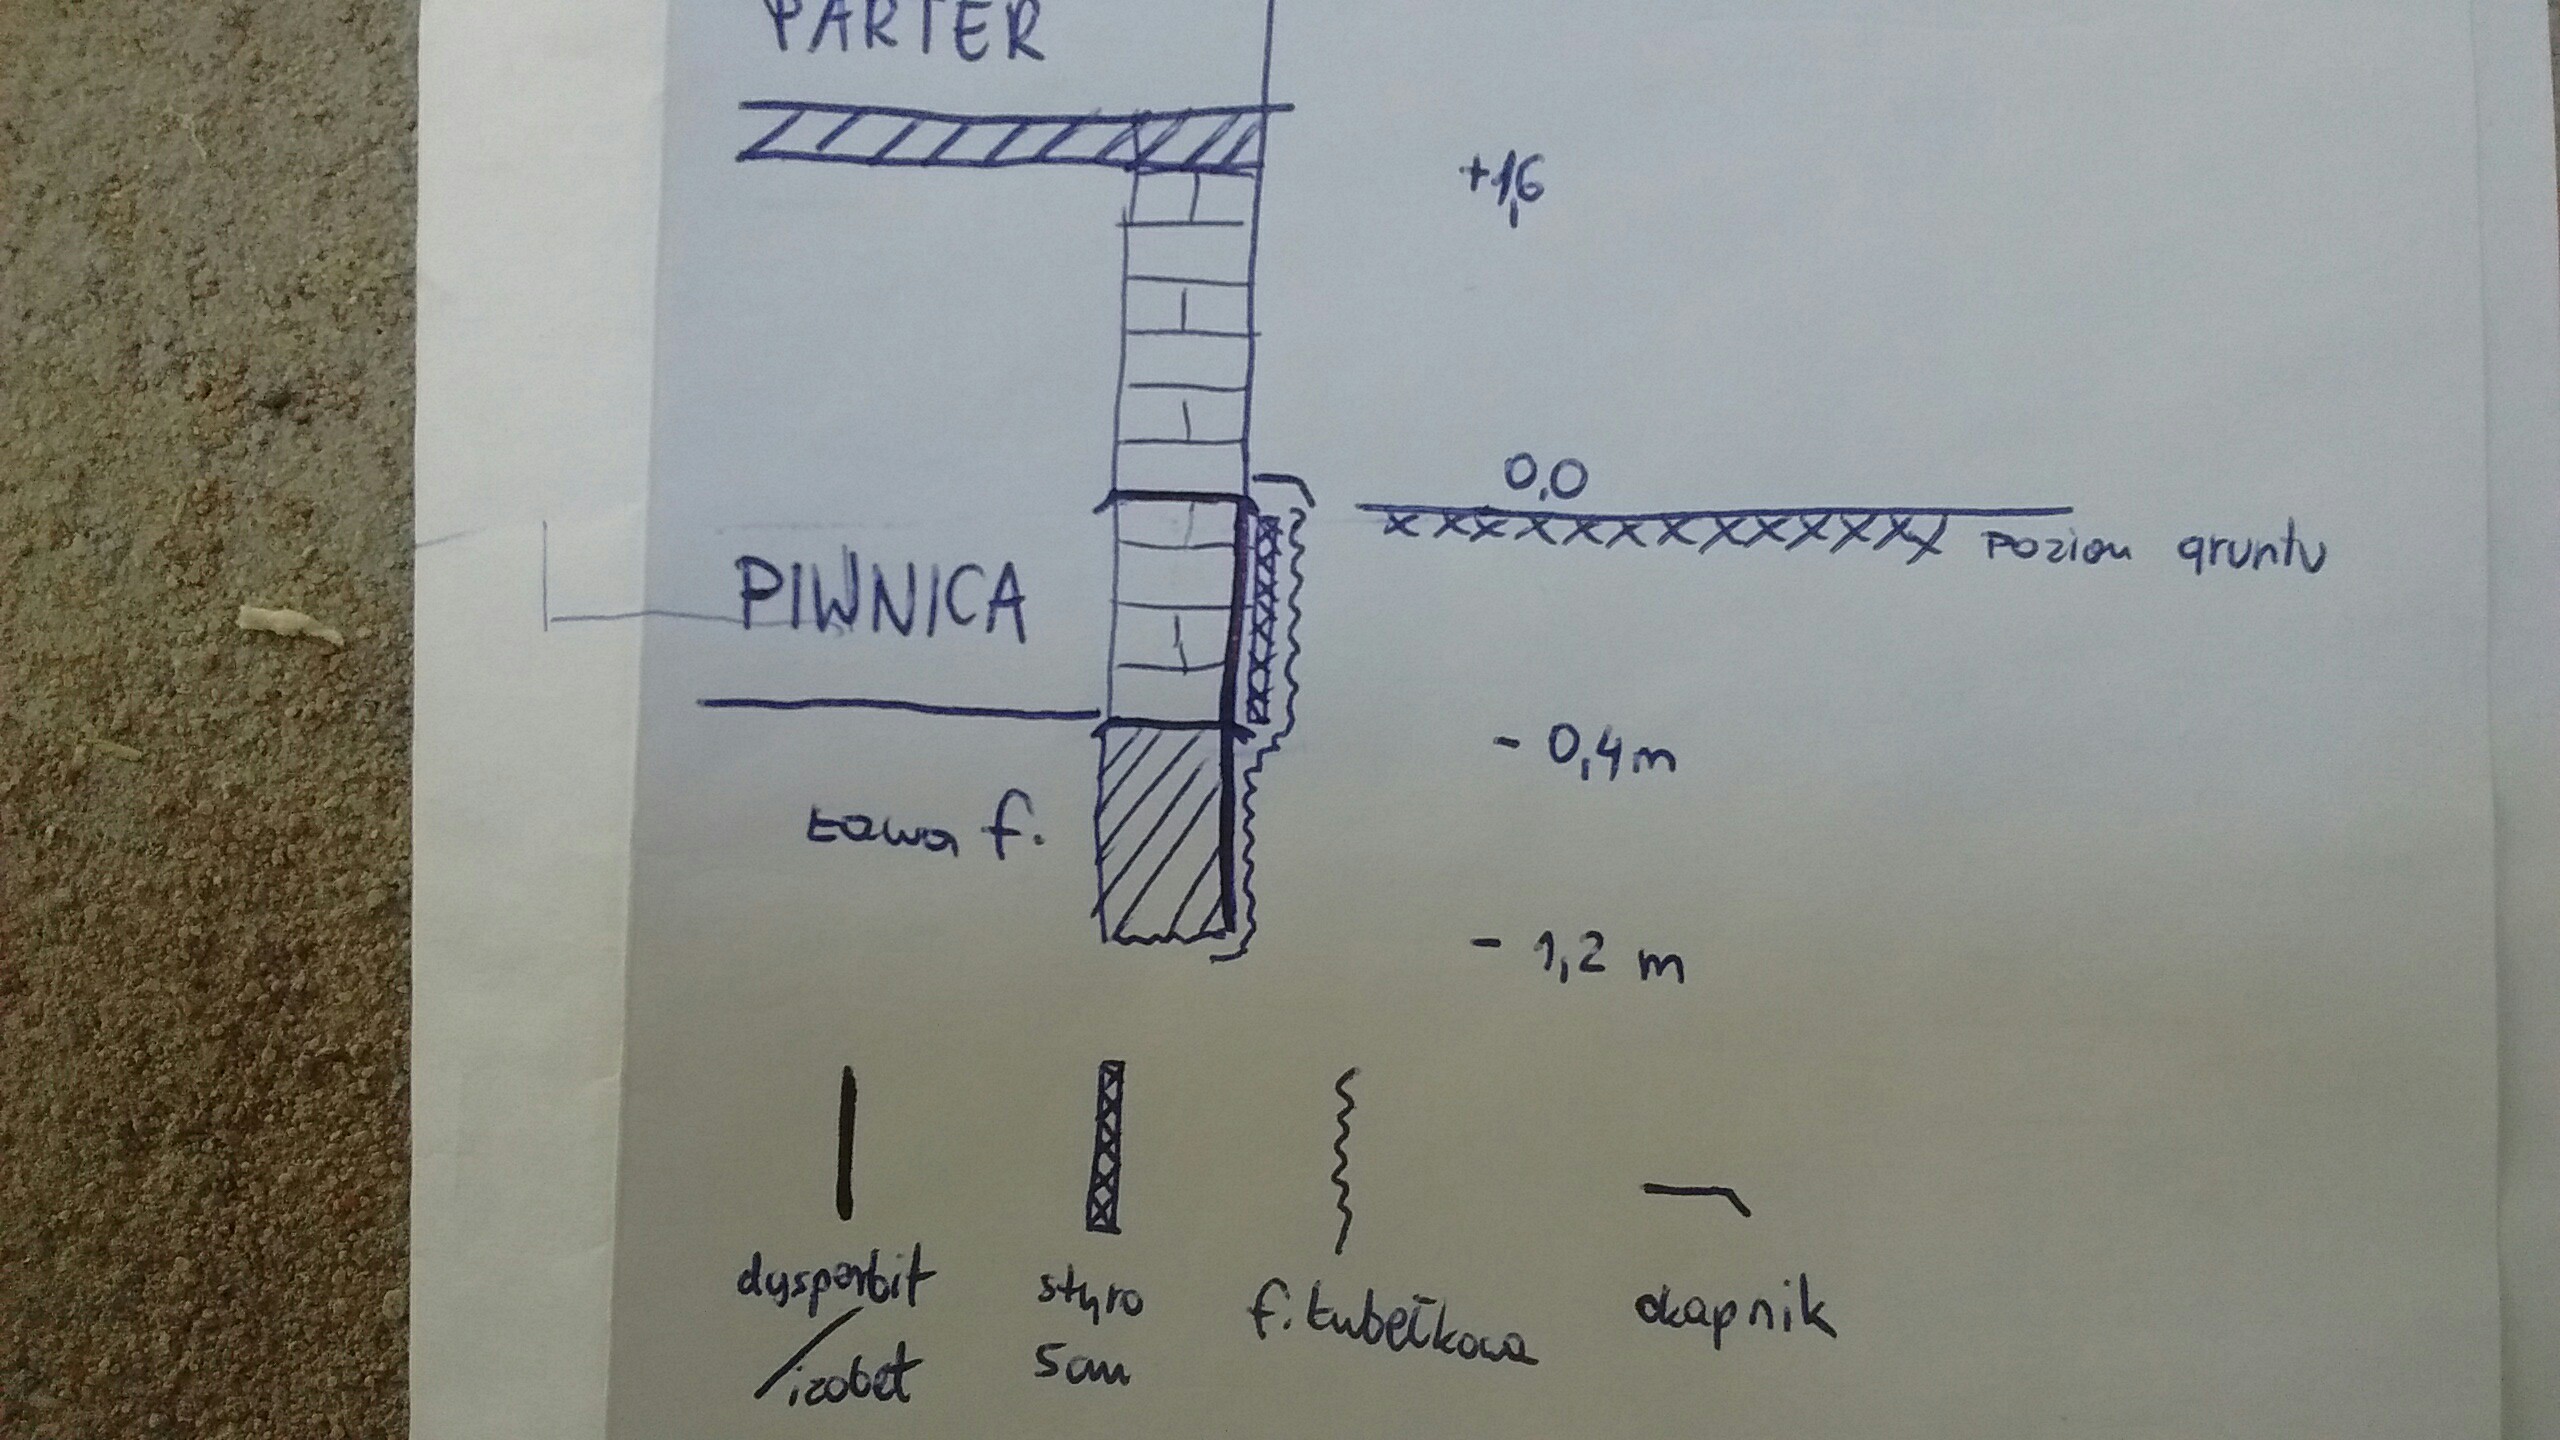 PARTER
+1,6
0,0
poziom gruntu
PIWNICA
- 0,4m
ława f.
- 1,2 m
dysperbit
/izobet
styro
5cm
f. kubełkowa
okapnik